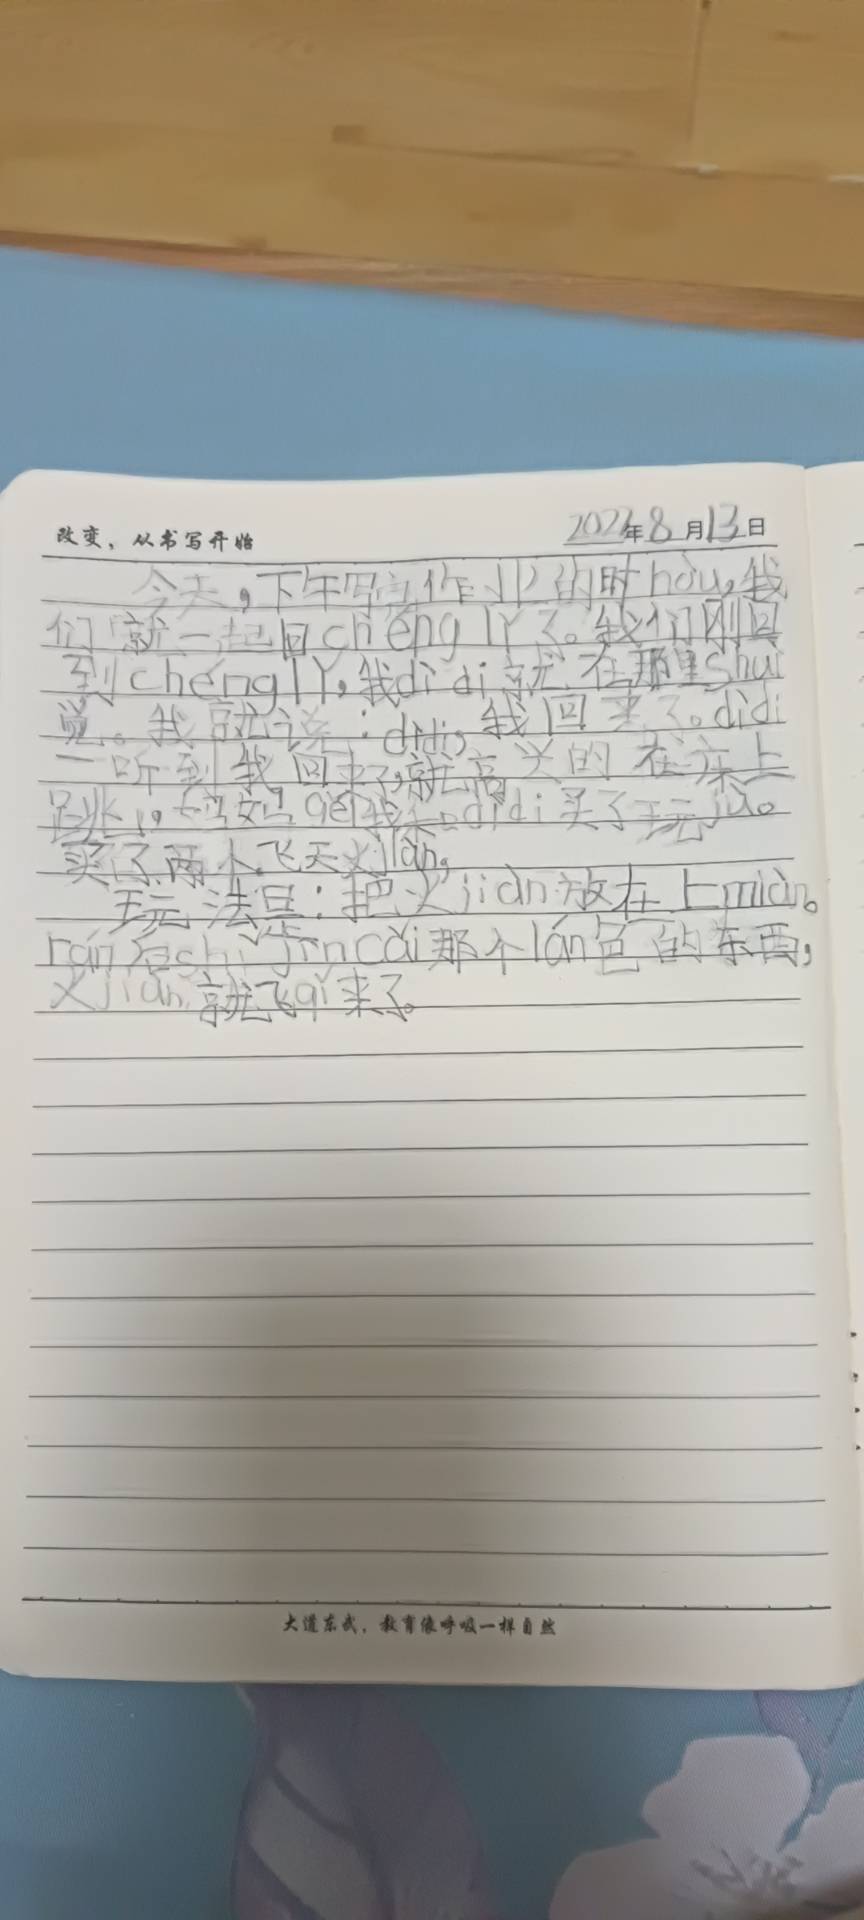 改变，从书写开始
2023年8月13日
今天，下午写完作业的时hòu，我
们就一起回chéng lǐ了。我们刚回
到chéng lǐ，我dì di就在那里shuì
觉。我就说：dìdi，我回来了。dìdi
一听到我回来了，就高兴的在床上
跳，妈妈gěi我和dìdi买了玩jù。
买了两个飞天火jiàn，
玩法是：把火jiàn放在上miàn。
rán后shǐ jìn cǎi那个lán色的东西，
火jiàn就飞qǐ来了。
大道东武，教育像呼吸一样自然